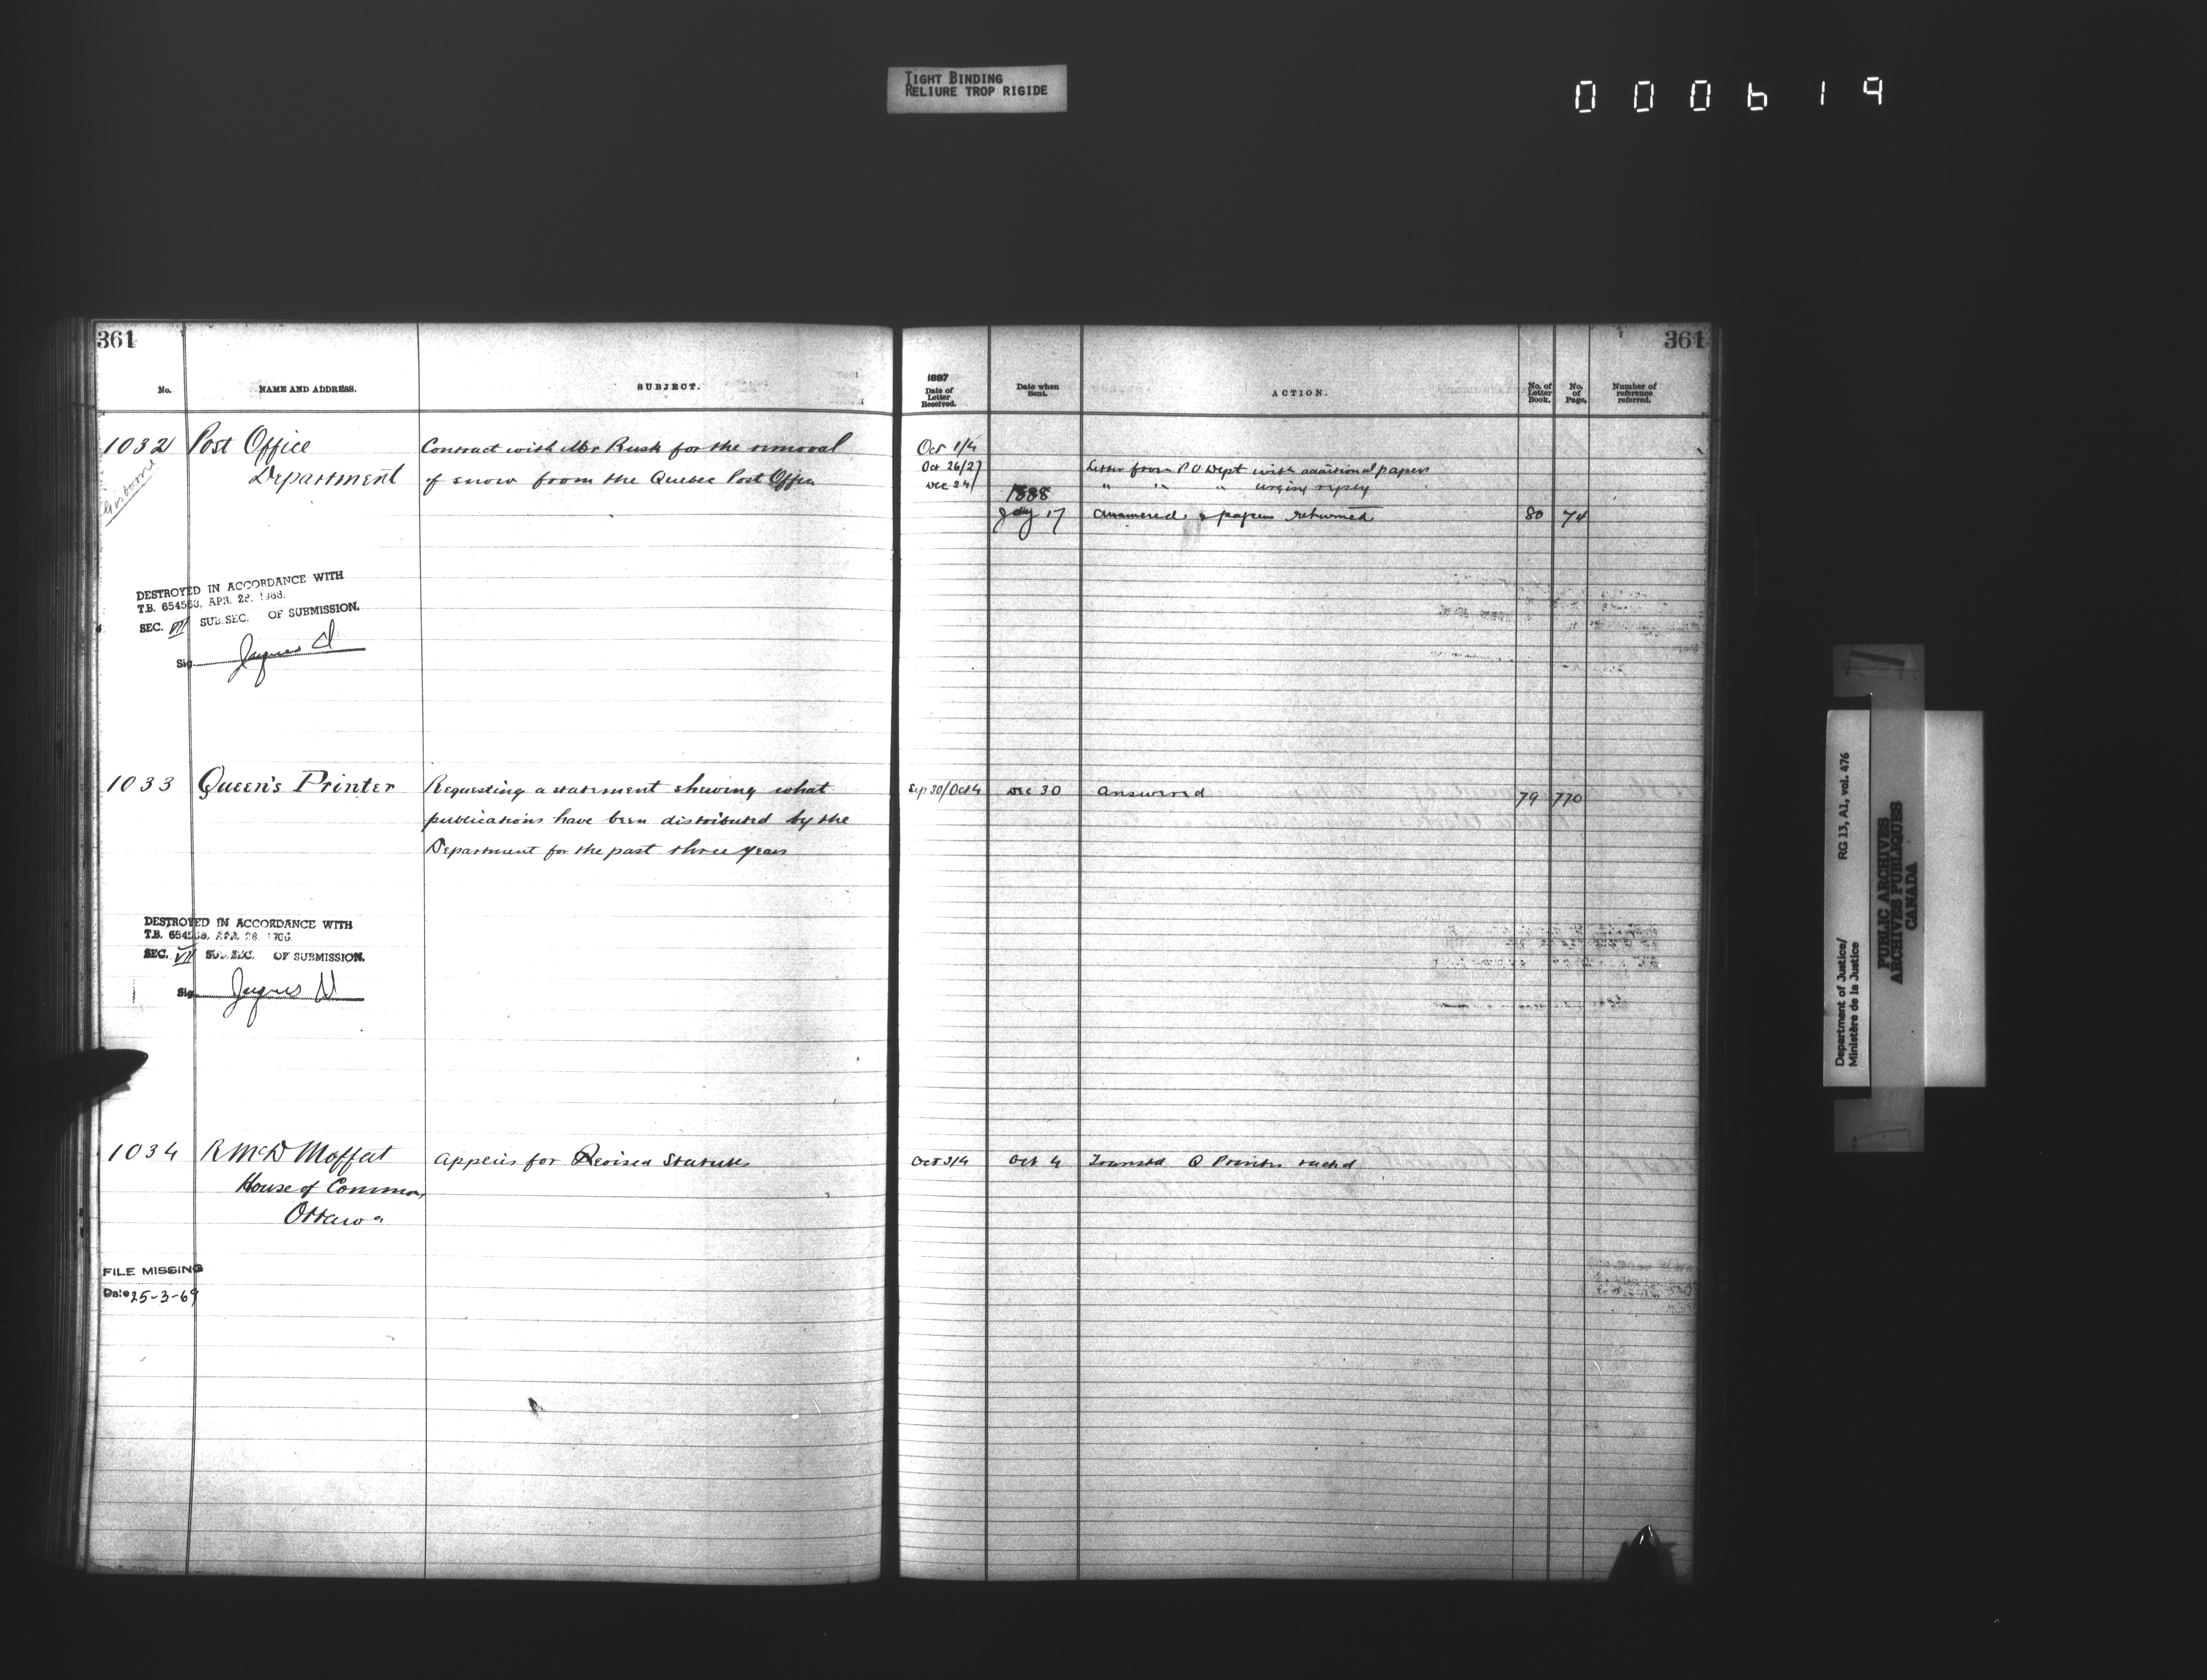 TIGHT BINDING
RELIURE TROP RIGIDE
000619
361
No.
NAME AND ADDRESS.
SUBJECT.
1032
Post Office
Department
Contract with Mr Rusk for the removal
of snow from the Quebec Post Office
DESTROYED IN ACCORDANCE WITH
T.B. 654563, APR. 28, 1966.
SEC. VII SUB. SEC. OF SUBMISSION.
Sig. Jacques
1033
Queen's Printer
Requesting a statement shewing what
publications have been distributed by the
Department for the past three years
DESTROYED IN ACCORDANCE WITH
T.B.
SEC. VII SUB. SEC. OF SUBMISSION.
Sig. Jacques
1034
R McD Moffat
House of Commons
Ottawa
Applies for Revised Statutes
FILE MISSING
Date 25-3-69
361
1887
Date of
Letter
Received.
Date when
Sent.
ACTION.
No. of
Letter
Book.
No.
of
Page.
Number of
reference
referred.
Oct 1/4
Oct 26/27
Letter from P O Dept with additional papers
Dec 24/
" " " urging reply
1888
Jany 17
answered & papers returned
80
74
Sep 30/Oct 4
Dec 30
answered
79
770
Oct 3/4
Oct 4
Q Printer
Department of Justice/
Ministère de la Justice
RG 13, A1, vol. 476
PUBLIC ARCHIVES
ARCHIVES PUBLIQUES
CANADA